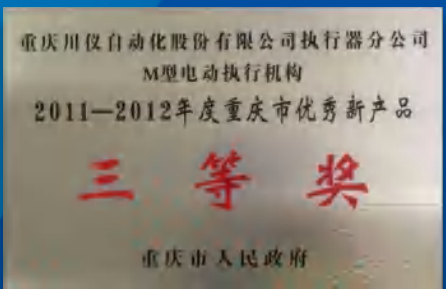 重庆川仪自动化股份有限公司执行器分公司
M型电动执行机构
2011—2012年度重庆市优秀新产品
三等奖
重庆市人民政府